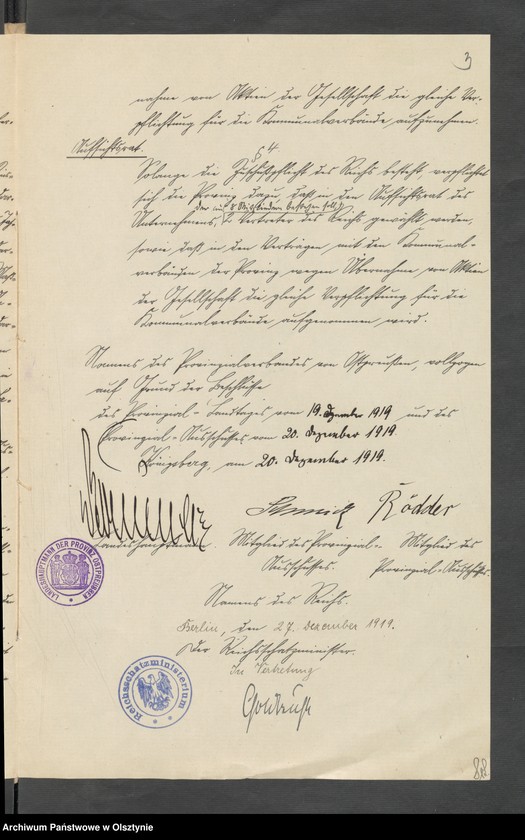 3
nahme von Aktien der Gesellschaft die gleiche Ver-
pflichtung für die Kommunalverbände aufzunehmen.
§ 4
Aufsichtsrat.
Solange die Zuschußpflicht des Reichs besteht verpflichtet
sich die Provinz dazu, daß in den Aufsichtsrat des
der aus 8 Mitgliedern bestehen soll,
Unternehmens, 2 Vertreter des Reichs gewählt werden,
sowie daß in den Verträgen mit den Kommunal-
verbänden der Provinz wegen Übernahme von Aktien
der Gesellschaft die gleiche Verpflichtung für die
Kommunalverbände aufgenommen wird.
Namens des Provinzialverbandes von Ostpreußen, vollzogen
auf Grund der Beschlüsse
des Provinzial-Landtages vom 19. Dezember 1919 und des
Provinzial-Ausschusses vom 20. Dezember 1919.
Königsberg, am 20. Dezember 1919.
Rödder
Landeshauptmann.
Mitglied des Provinzial-
Ausschusses.
Mitglied des
Provinzial-Ausschusses.
LANDESHAUPTMANN DER PROVINZ OSTPREUSSEN
Namens des Reichs.
Berlin, den 27. Dezember 1919.
Der Reichsschatzminister.
In Vertretung
Reichsschatzministerium
Archiwum Państwowe w Olsztynie